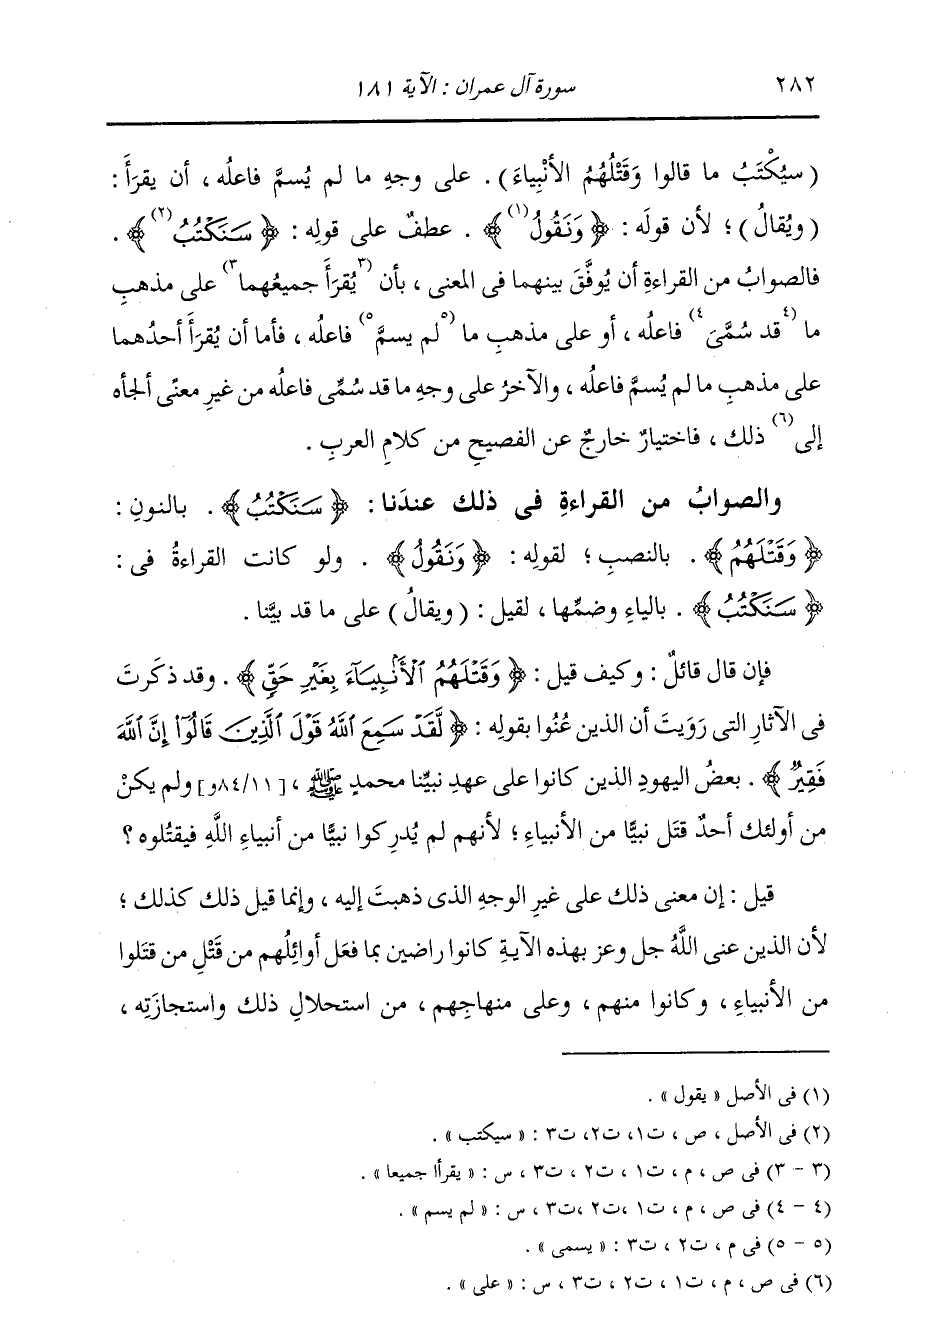 ٢٨٢ سورة آل عمران : الآية ١٨١
( سيُكْتَبُ ما قالوا وَقَتْلُهُمُ الأنْبِياءَ ) . على وجهِ ما لم يُسمَّ فاعلُه ، أن يقرَأَ :
( ويُقالُ ) ؛ لأن قولَه : ﴿ وَنَقُولُ(١) ﴾ . عطفٌ على قولِه : ﴿ سَنَكْتُبُ(٢) ﴾ .
فالصوابُ من القراءةِ أن يُوفَّقَ بينهما فى المعنى ، بأن (٣يُقرَأَ جميعُهما٣) على مذهبِ
ما (٤قد سُمَّىَ٤) فاعلُه ، أو على مذهبِ ما (٥لم يسمَّ٥) فاعلُه ، فأما أن يُقرَأَ أحدُهما
على مذهبِ ما لم يُسمَّ فاعلُه ، والآخرُ على وجهِ ما قد سُمِّى فاعلُه من غيرِ معنًى ألجأه
إلى(٦) ذلك ، فاختيارٌ خارجٌ عن الفصيحِ من كلامِ العربِ .
والصوابُ من القراءةِ فى ذلك عندَنا : ﴿ سَنَكْتُبُ ﴾ . بالنونِ :
﴿ وَقَتْلَهُمُ ﴾ . بالنصبِ ؛ لقولِه : ﴿ وَنَقُولُ ﴾ . ولو كانت القراءةُ فى :
﴿ سَنَكْتُبُ ﴾ . بالياءِ وضمِّها ، لقيل : ( ويقالُ ) على ما قد بيَّنا .
فإن قال قائلٌ : وكيف قيل : ﴿ وَقَتْلَهُمُ ٱلْأَنۢبِيَآءَ بِغَيْرِ حَقٍّ ﴾ . وقد ذكَرتَ
فى الآثارِ التى رَوَيتَ أن الذين عُنُوا بقولِه : ﴿ لَّقَدْ سَمِعَ ٱللَّهُ قَوْلَ ٱلَّذِينَ قَالُوٓا۟ إِنَّ ٱللَّهَ
فَقِيرٌ ﴾ . بعضُ اليهودِ الذين كانوا على عهدِ نبيِّنا محمدٍ ﷺ ، [٨٤/١١و] ولم يكنْ
من أولئك أحدٌ قتَل نبيًّا من الأنبياءِ ؛ لأنهم لم يُدرِكوا نبيًّا من أنبياءِ اللَّهِ فيقتُلوه ؟
قيل : إن معنى ذلك على غيرِ الوجهِ الذى ذهبتَ إليه ، وإنما قيل ذلك كذلك ؛
لأن الذين عنى اللَّهُ جل وعز بهذه الآيةِ كانوا راضين بما فعَل أوائلُهم من قَتْلِ من قتَلوا
من الأنبياءِ ، وكانوا منهم ، وعلى منهاجِهم ، من استحلالِ ذلك واستجازَتِه ،
(١) فى الأصل « يقول » .
(٢) فى الأصل ، ص ، ت١، ت٢، ت٣ : « سيكتب » .
(٣ - ٣) فى ص ، م ، ت١ ، ت٢ ، ت٣ ، س : « يقرأا جميعا » .
(٤ - ٤) فى ص ، م ، ت١ ، ت٢ ، ت٣ ، س : « لم يسم » .
(٥ - ٥) فى م ، ت٢ ، ت٣ : « يسمى » .
(٦) فى ص ، م ، ت١ ، ت٢ ، ت٣ ، س : « على » .